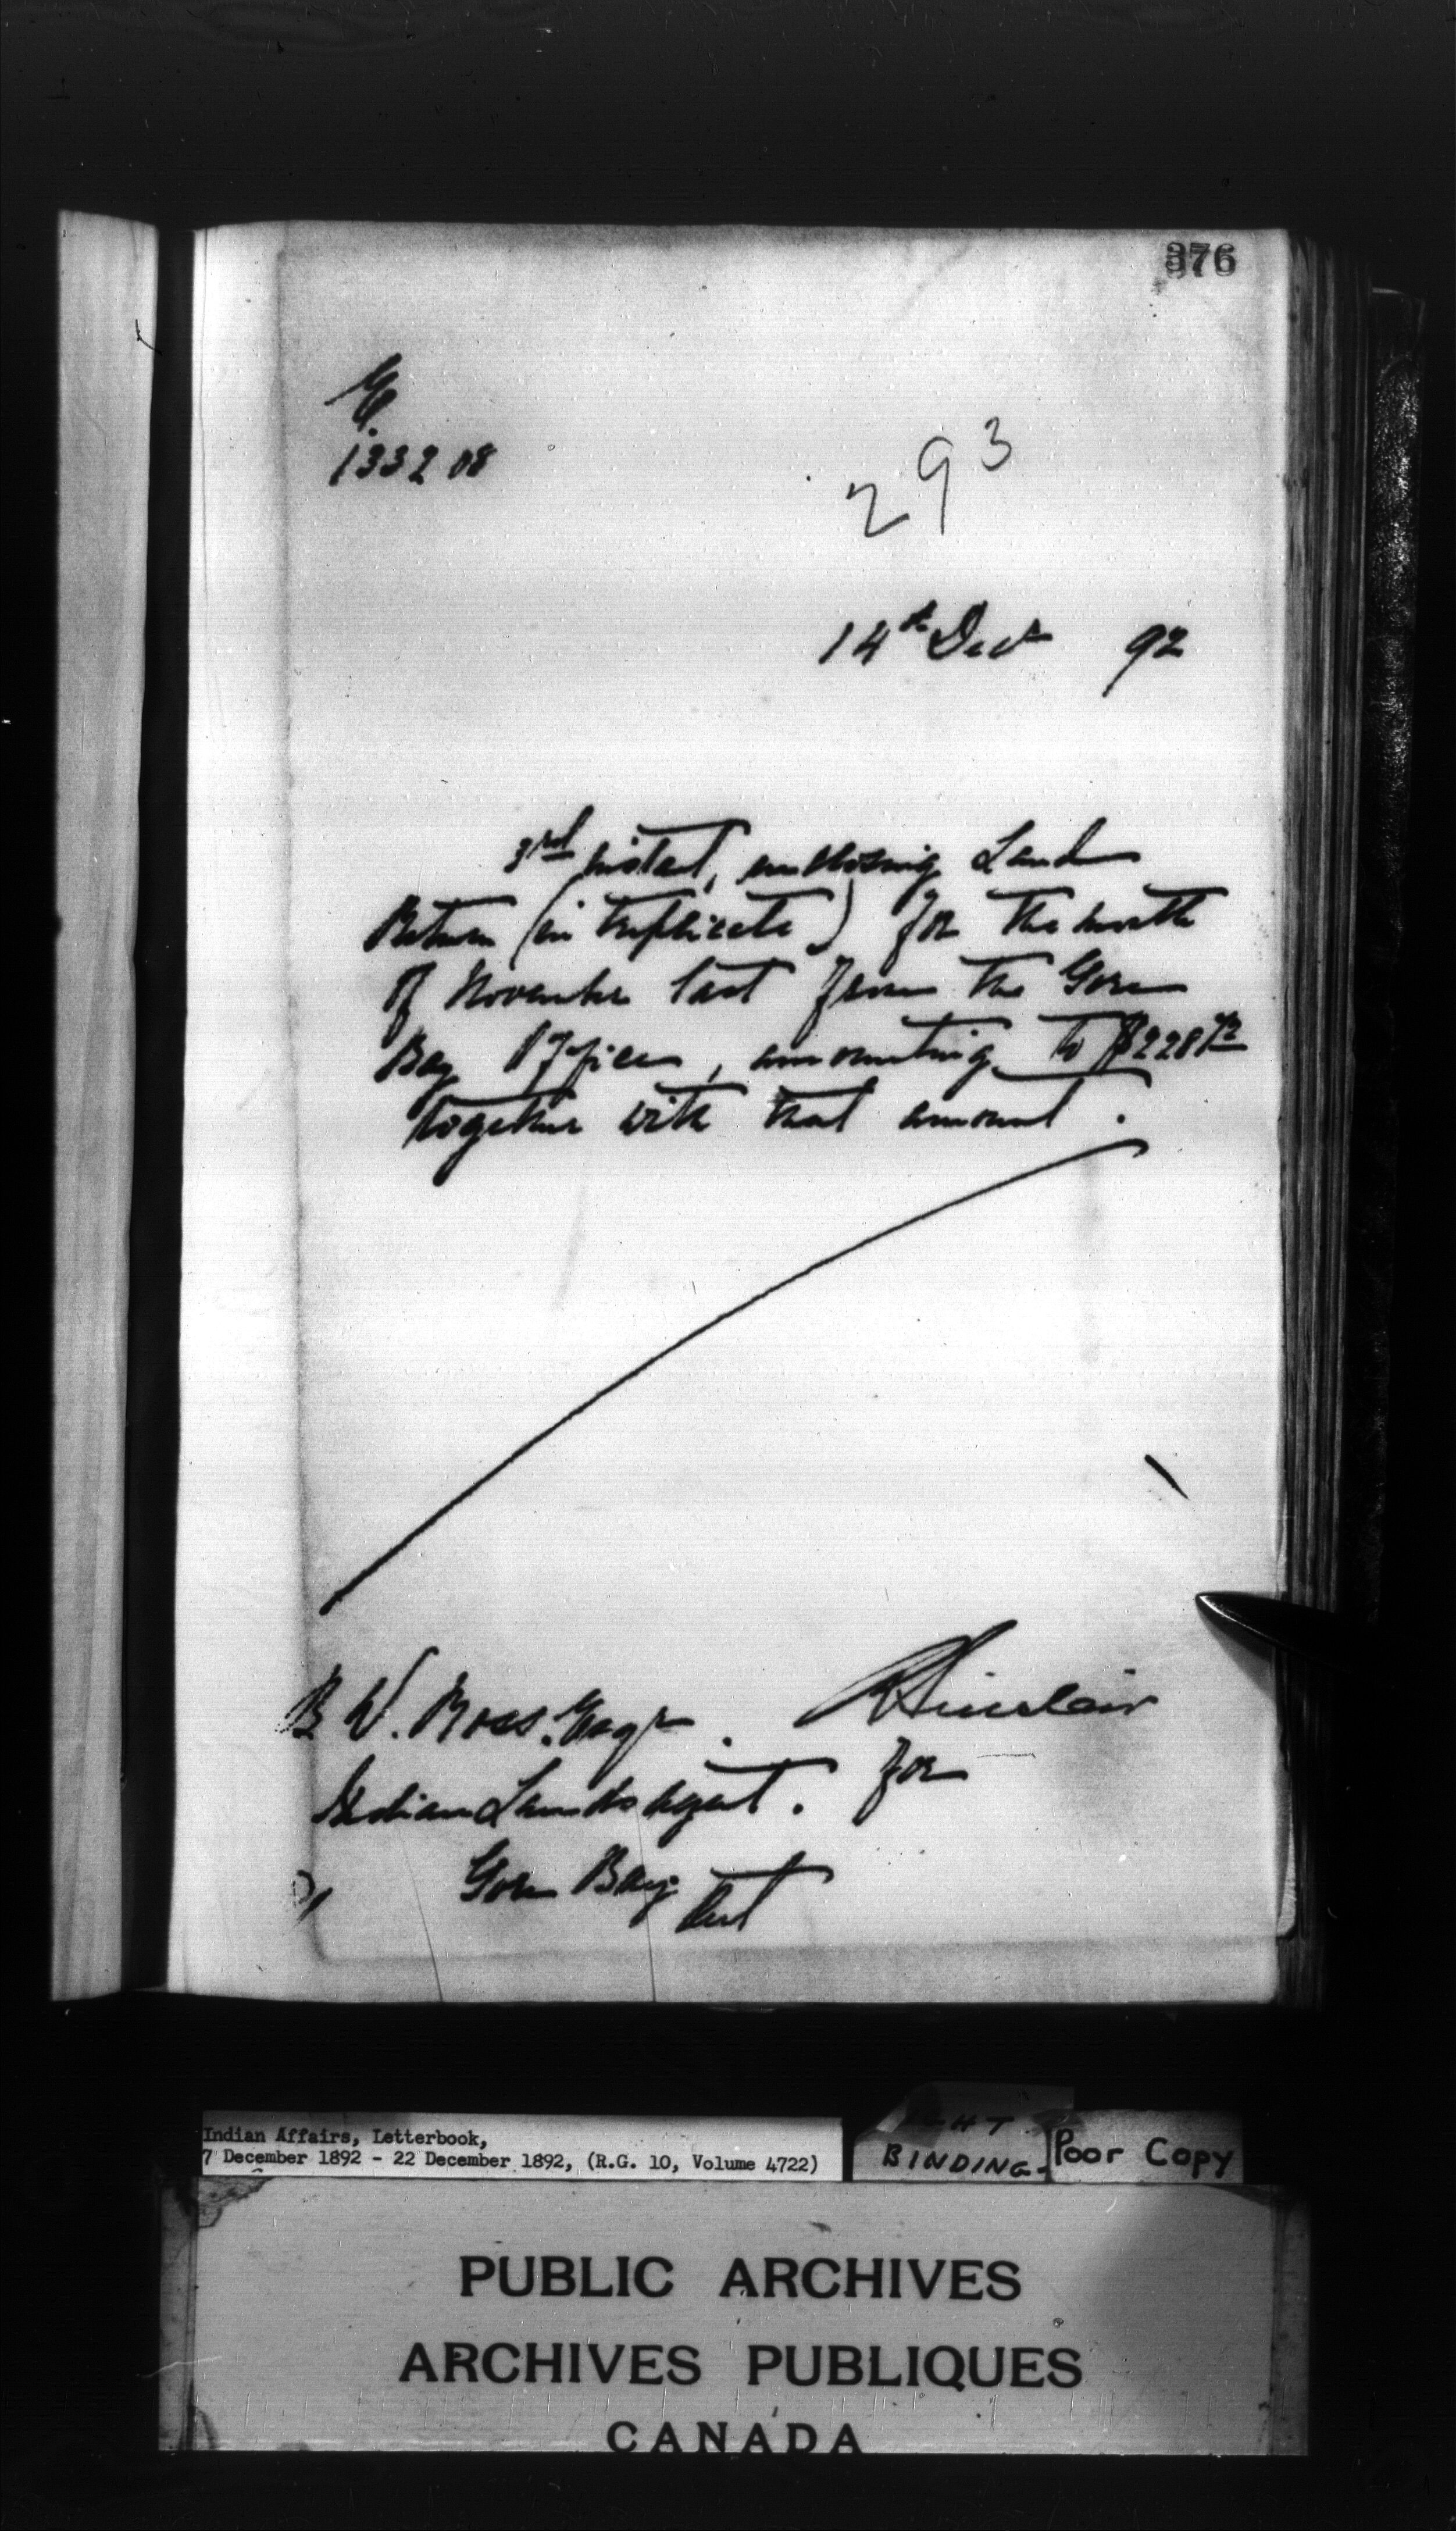 376
133208
293
14th Dec 92
3rd instant, enclosing Land
Return (in triplicate) for the month
of November last from the Gore
Bay Office, amounting to $228
together with that amount.
B W. Ross. Esqr.
Sinclair
for
Indian Lands Agent.
Gore Bay
Ont
Indian Affairs, Letterbook,
7 December 1892 - 22 December 1892, (R.G. 10, Volume 4722)
BINDING
Poor Copy
PUBLIC ARCHIVES
ARCHIVES PUBLIQUES
CANADA